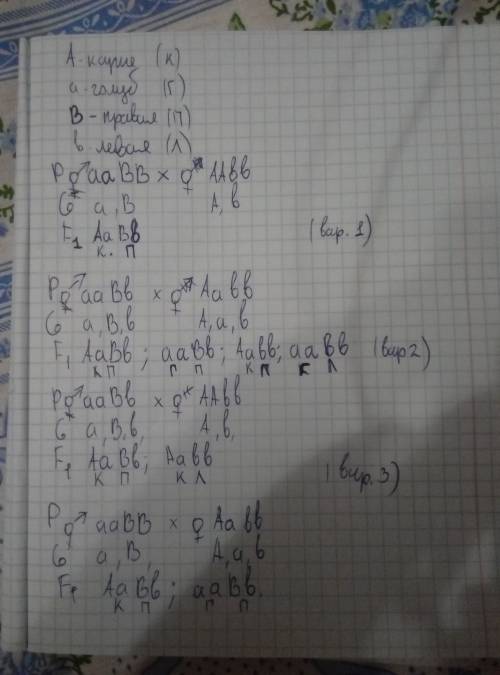 А-карие (К)
а-голуб (Г)
В-правая (П)
в левая (Л)
P ♂ ааВВ х ♀ ААвв
G а, В А, в
F1 АаВв (вар. 1)
К. П
P ♂ ааВв х ♀ Аавв
G а, В, в А, а, в
F1 АаВв; ааВв; Аавв; аавв (вар 2)
К П Г П К П К Л
P ♂ ааВв х ♀ ААвв
G а, В, в, А, в,
F1 АаВв; Аавв
К П К Л (вар. 3)
P ♂ ааВВ х ♀ Аавв
G а, В, А, а, в
F1 АаВв; ааВв.
К П Г П